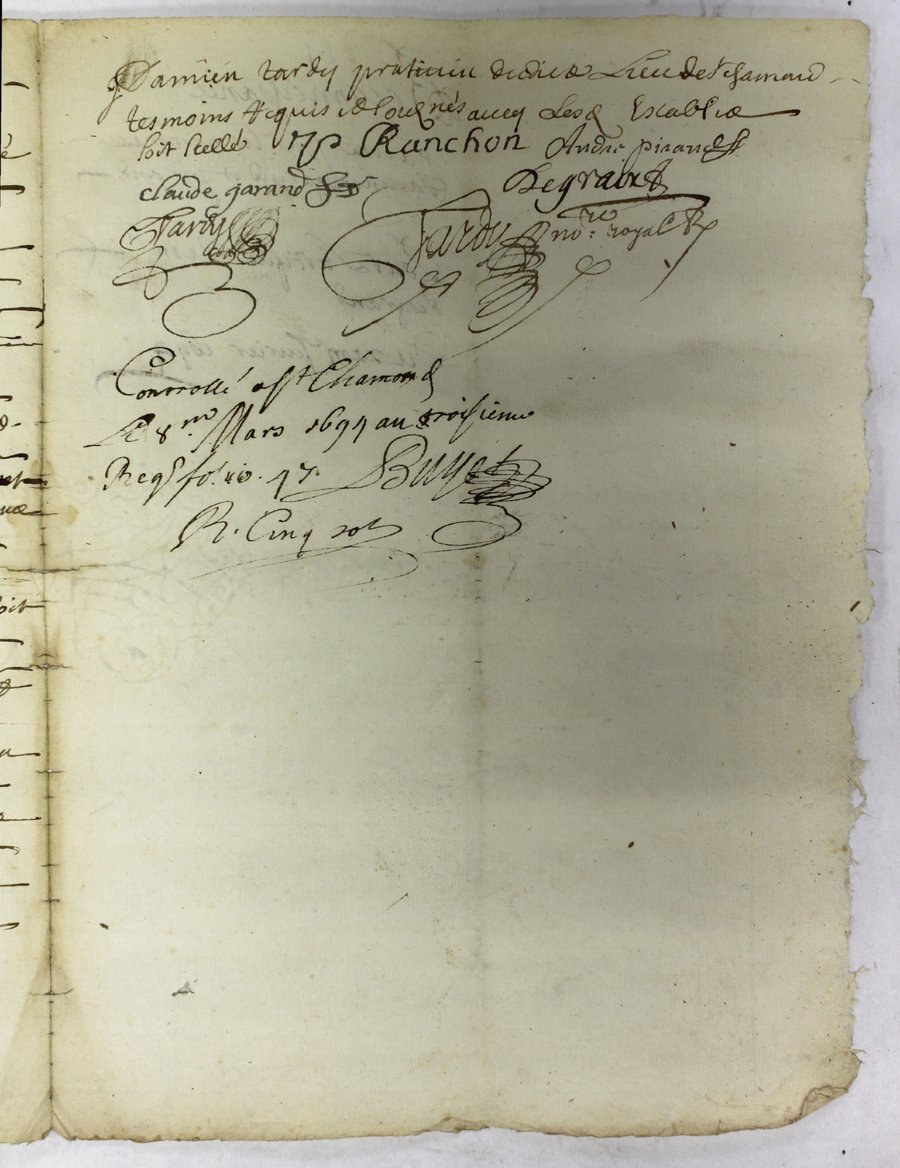 Damien tardy praticien dudict Lieu de st chamond
tesmoins requis et soubsignés avecq Les Establie
soit scellé Ranchon André piraud
claude garand Degraix
Tardy Tardy nore royal R
Controllé a st Chamond
Le 8me Mars 1694 au troisieme
Rege fo. 47.
R. Cinq sol